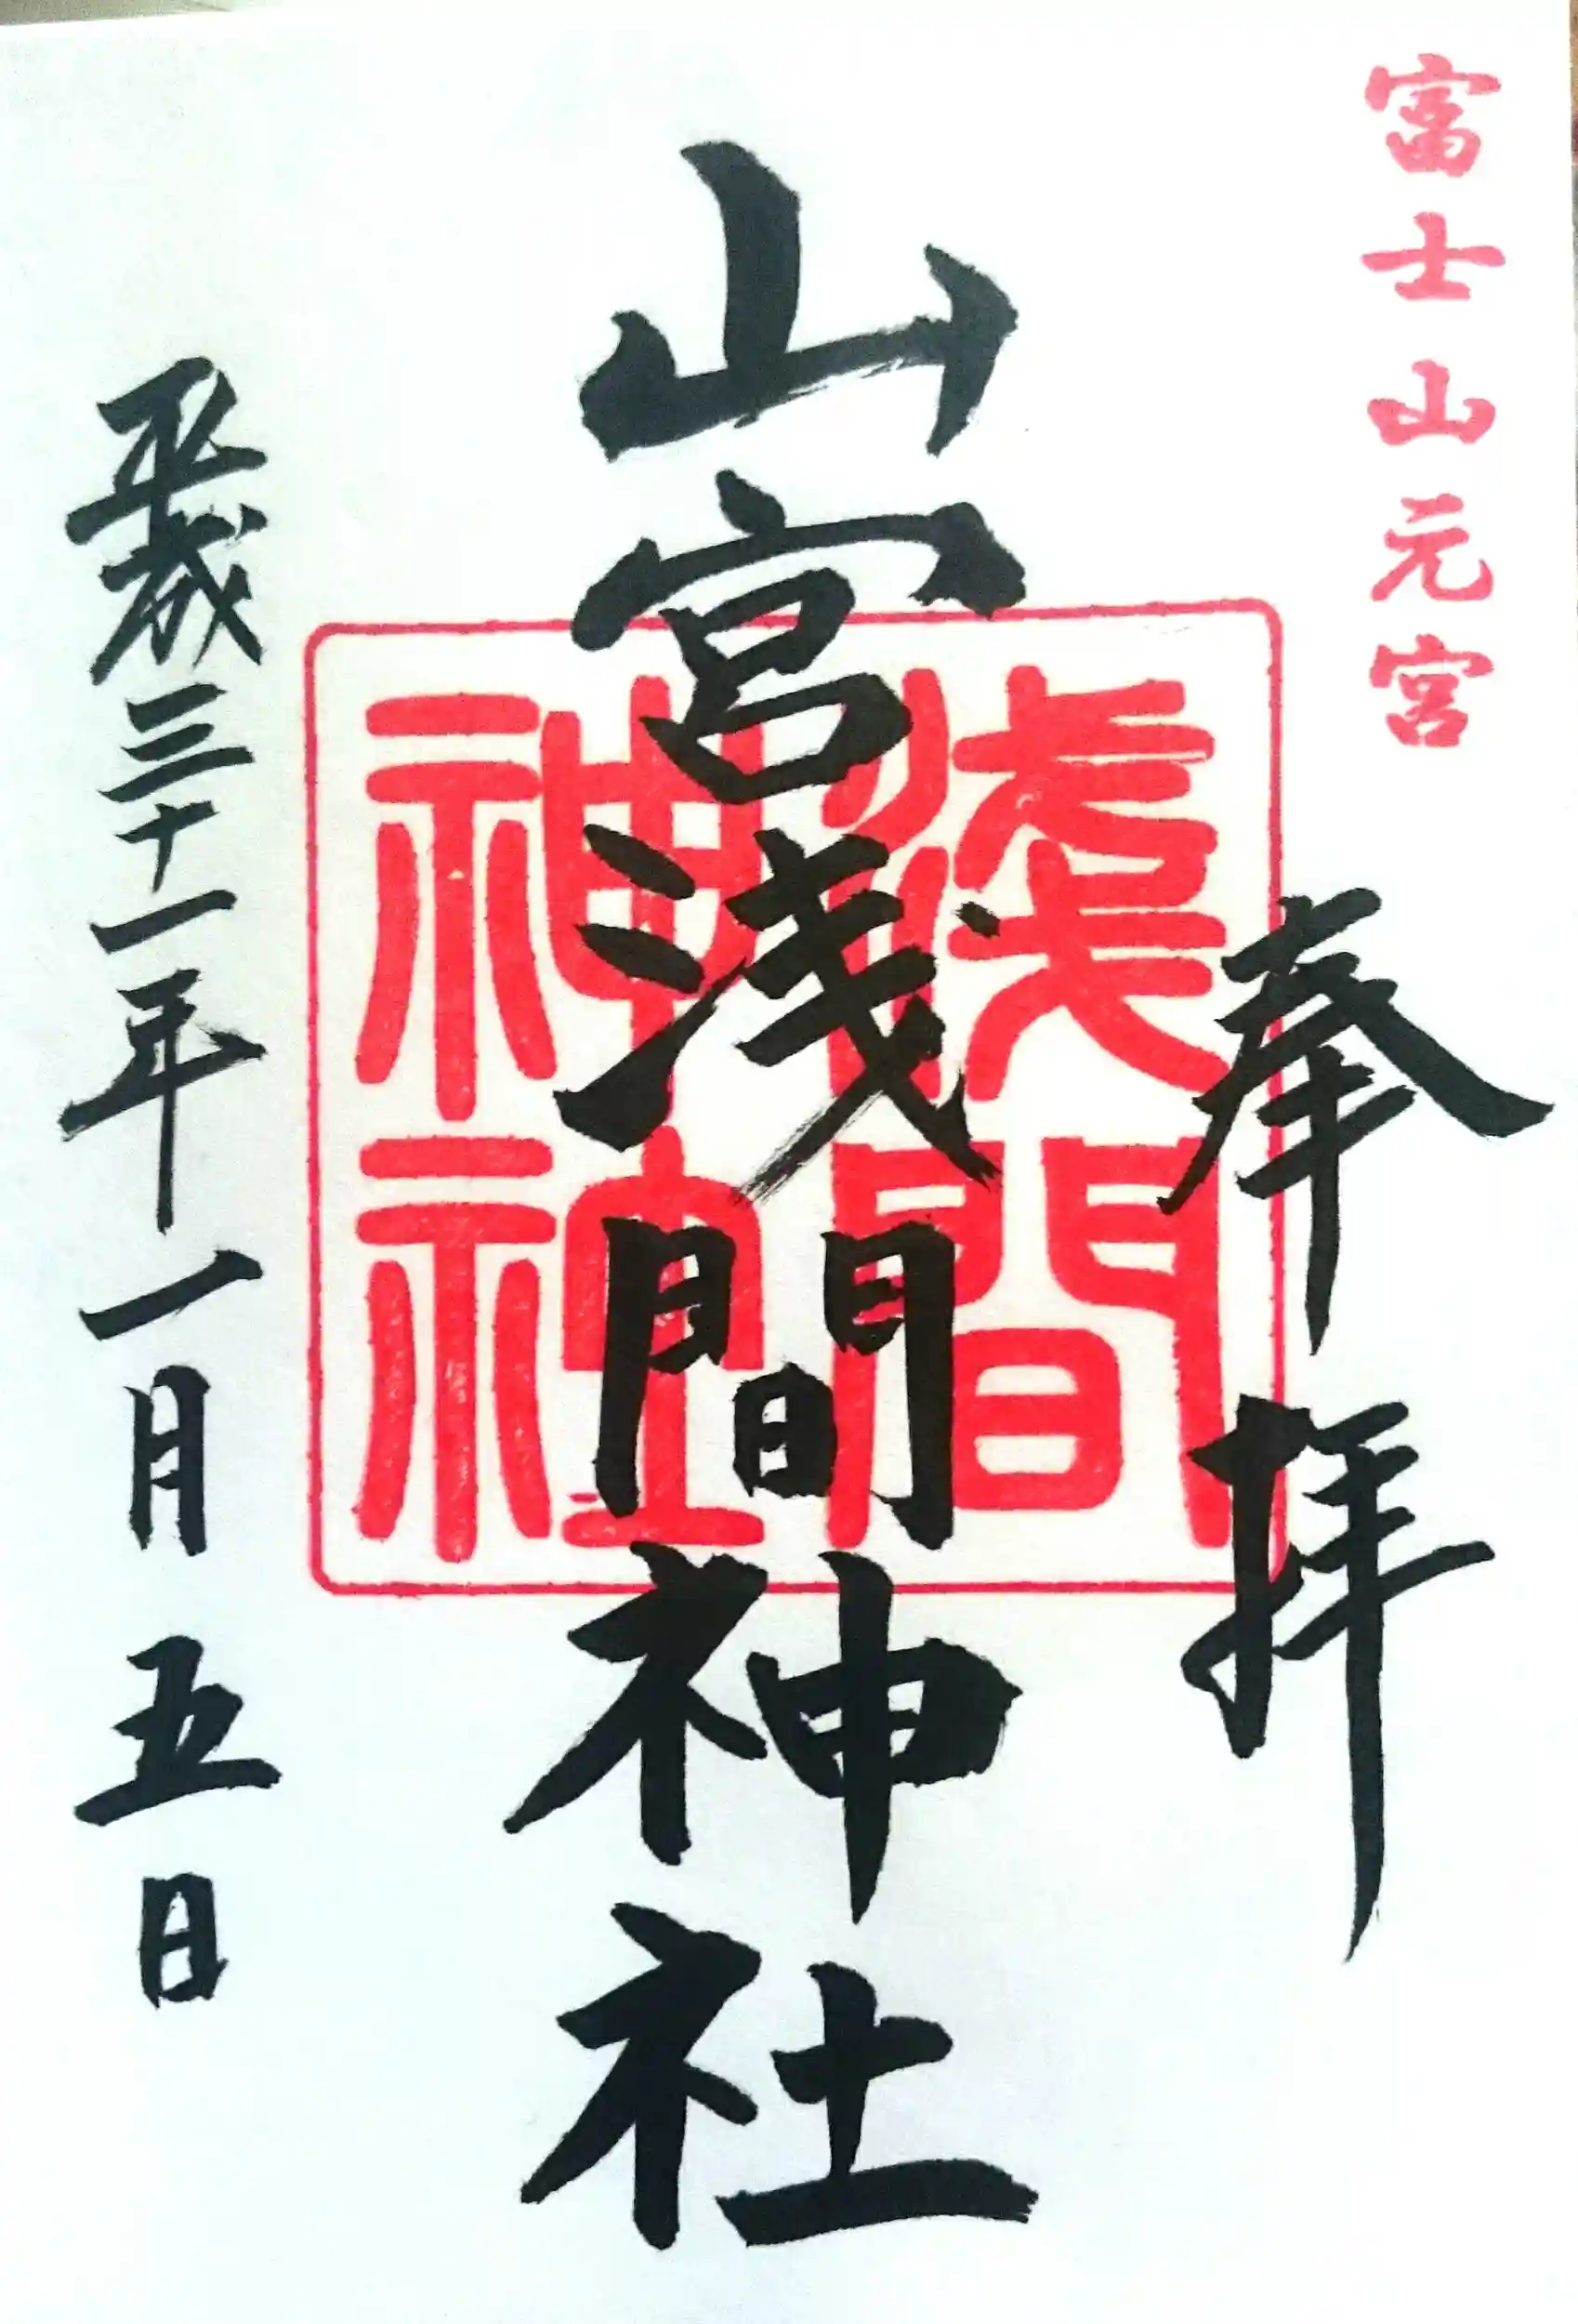 富士山元宮
奉拝
山宮浅間神社
淺間
神社
平成三十一年一月五日